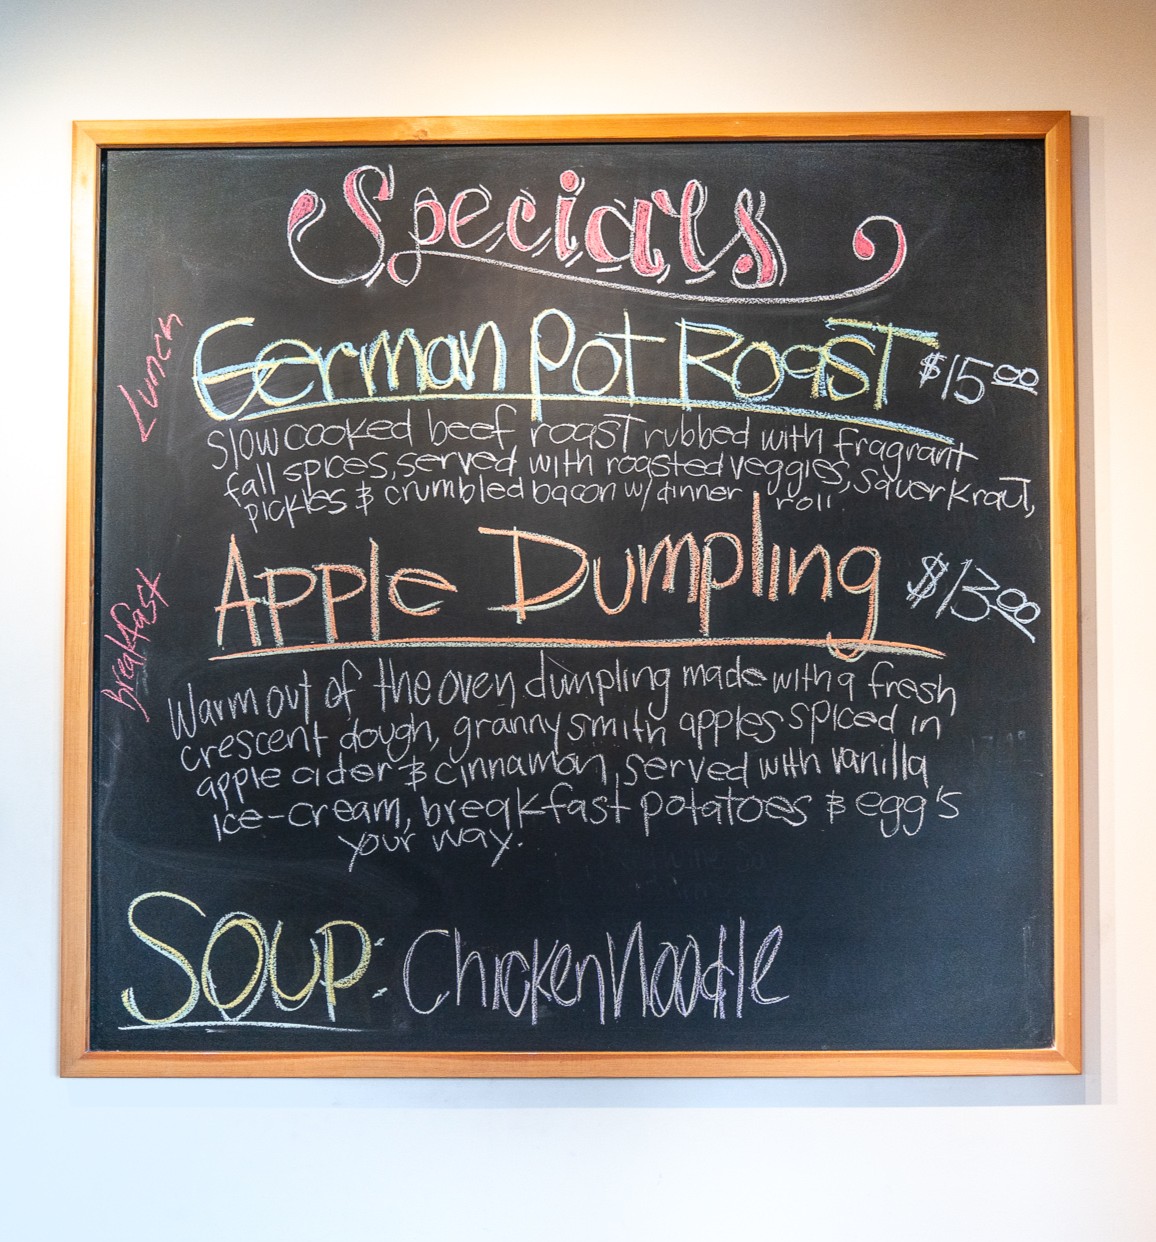 Specials
Lunch
German Pot Roast $15.00
Slow cooked beef roast rubbed with fragrant
fall spices, served with roasted veggies, sauerkraut,
pickles & crumbled bacon w/ dinner roll
breakfast
Apple Dumpling $13.00
Warm out of the oven dumpling made with a fresh
crescent dough, granny smith apples spiced in
apple cider & cinnamon, served with vanilla
ice-cream, breakfast potatoes & egg's
your way.
Soup: Chicken Noodle